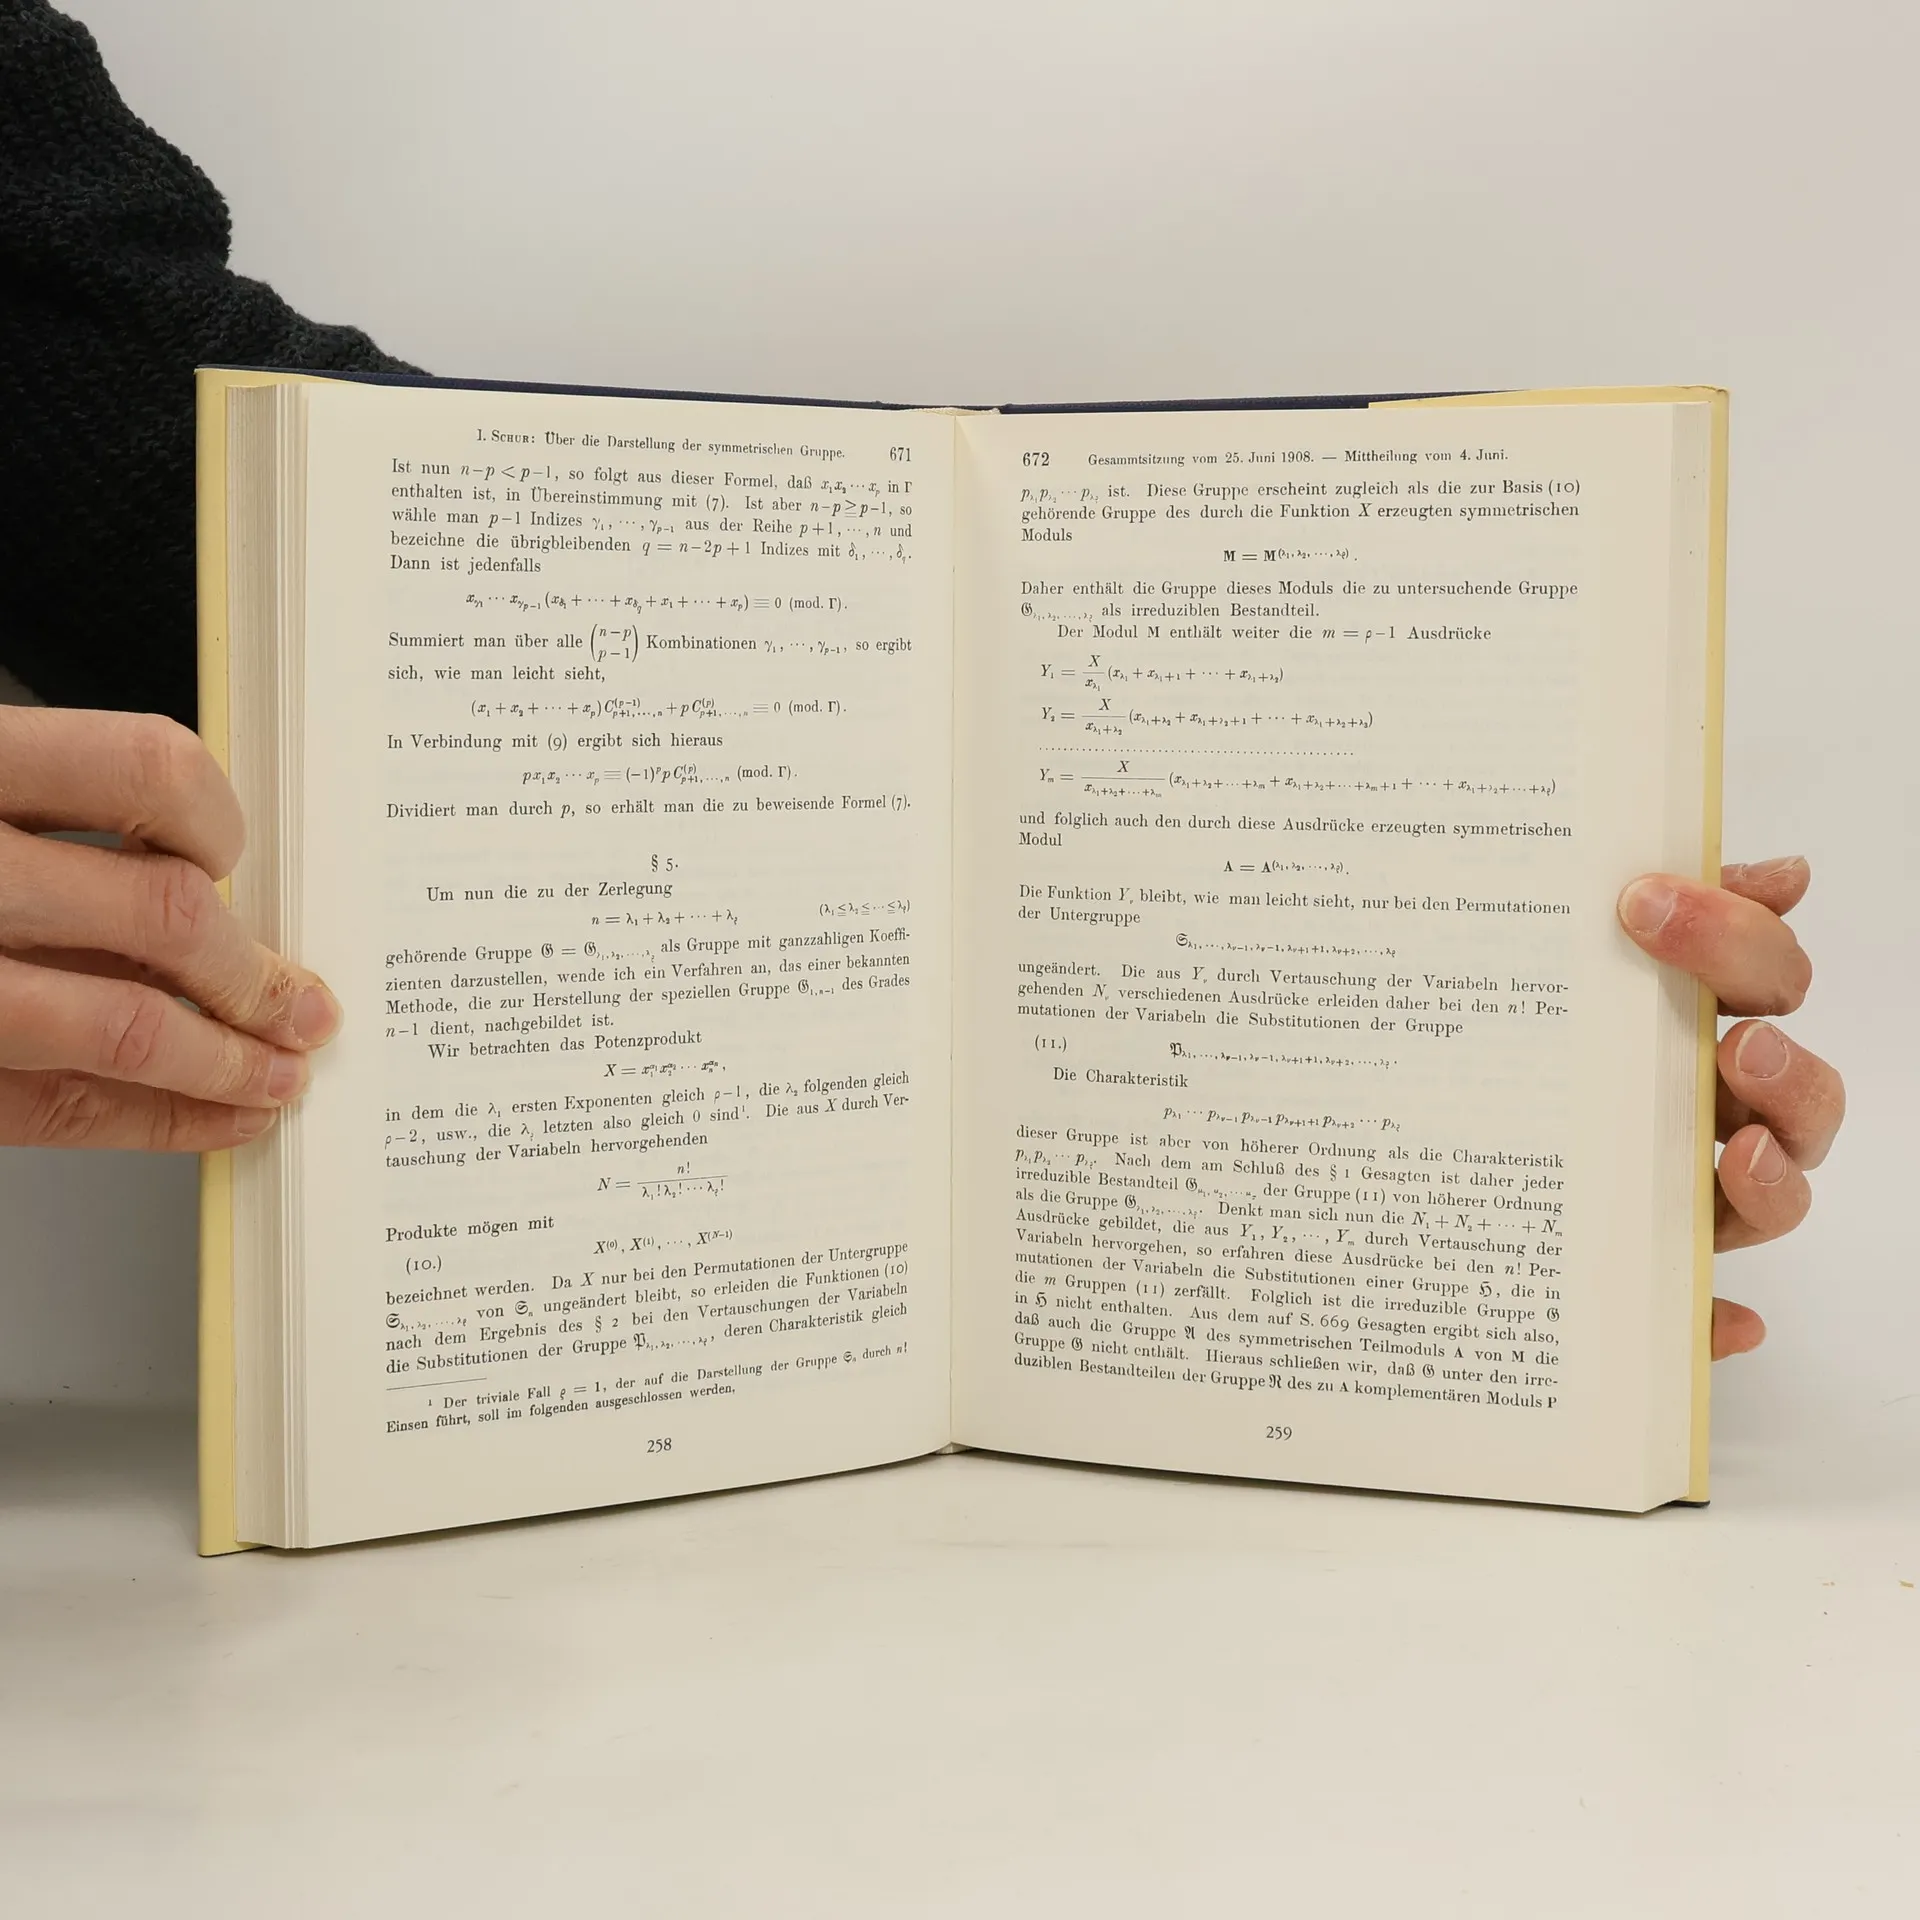 I. Schur: Über die Darstellung der symmetrischen Gruppe. 671
Ist nun n−p < p−1, so folgt aus dieser Formel, daß x₁x₂ ⋯ xₚ in Γ
enthalten ist, in Übereinstimmung mit (7). Ist aber n−p ≧ p−1, so
wähle man p−1 Indizes γ₁, ⋯, γ_{p−1} aus der Reihe p+1, ⋯, n und
bezeichne die übrigbleibenden q = n−2p+1 Indizes mit δ₁, ⋯, δ_q.
Dann ist jedenfalls
x_{γ₁} ⋯ x_{γ_{p−1}} (x_{δ₁} + ⋯ + x_{δ_q} + x₁ + ⋯ + x_p) ≡ 0 (mod. Γ).
Summiert man über alle (n−p / p−1) Kombinationen γ₁, ⋯, γ_{p−1}, so ergibt
sich, wie man leicht sieht,
(x₁ + x₂ + ⋯ + x_p) C^{(p−1)}_{p+1, …, n} + p C^{(p)}_{p+1, …, n} ≡ 0 (mod. Γ).
In Verbindung mit (9) ergibt sich hieraus
p x₁ x₂ ⋯ x_p ≡ (−1)^p p C^{(p)}_{p+1, …, n} (mod. Γ).
Dividiert man durch p, so erhält man die zu beweisende Formel (7).
§ 5.
Um nun die zu der Zerlegung
n = λ₁ + λ₂ + ⋯ + λ_ρ (λ₁ ≦ λ₂ ≦ ⋯ ≦ λ_ρ)
gehörende Gruppe 𝔊 = 𝔊_{λ₁, λ₂, …, λ_ρ} als Gruppe mit ganzzahligen Koeffi-
zienten darzustellen, wende ich ein Verfahren an, das einer bekannten
Methode, die zur Herstellung der speziellen Gruppe 𝔊_{1, n−1} des Grades
n−1 dient, nachgebildet ist.
Wir betrachten das Potenzprodukt
X = x₁^{α₁} x₂^{α₂} ⋯ x_n^{α_n},
in dem die λ₁ ersten Exponenten gleich ρ−1, die λ₂ folgenden gleich
ρ−2, usw., die λ_ρ letzten also gleich 0 sind¹. Die aus X durch Ver-
tauschung der Variabeln hervorgehenden
N = n! / λ₁! λ₂! ⋯ λ_ρ!
Produkte mögen mit
(10.) X^{(0)}, X^{(1)}, ⋯, X^{(N−1)}
bezeichnet werden. Da X nur bei den Permutationen der Untergruppe
𝔖_{λ₁, λ₂, …, λ_ρ} von 𝔖_n ungeändert bleibt, so erleiden die Funktionen (10)
nach dem Ergebnis des § 2 bei den Vertauschungen der Variabeln
die Substitutionen der Gruppe 𝔓_{λ₁, λ₂, …, λ_ρ}, deren Charakteristik gleich
¹ Der triviale Fall ρ = 1, der auf die Darstellung der Gruppe 𝔖_n durch n!
Einsen führt, soll im folgenden ausgeschlossen werden.
258
672 Gesammtsitzung vom 25. Juni 1908. — Mittheilung vom 4. Juni.
p_{λ₁} p_{λ₂} ⋯ p_{λ_ρ} ist. Diese Gruppe erscheint zugleich als die zur Basis (10)
gehörende Gruppe des durch die Funktion X erzeugten symmetrischen
Moduls
M = M^{(λ₁, λ₂, …, λ_ρ)}.
Daher enthält die Gruppe dieses Moduls die zu untersuchende Gruppe
𝔊_{λ₁, λ₂, …, λ_ρ} als irreduziblen Bestandteil.
Der Modul M enthält weiter die m = ρ−1 Ausdrücke
Y₁ = X / x_{λ₁} (x_{λ₁} + x_{λ₁+1} + ⋯ + x_{λ₁+λ₂})
Y₂ = X / x_{λ₁+λ₂} (x_{λ₁+λ₂} + x_{λ₁+λ₂+1} + ⋯ + x_{λ₁+λ₂+λ₃})
........................................
Y_m = X / x_{λ₁+λ₂+⋯+λ_m} (x_{λ₁+λ₂+⋯+λ_m} + x_{λ₁+λ₂+⋯+λ_m+1} + ⋯ + x_{λ₁+λ₂+⋯+λ_ρ})
und folglich auch den durch diese Ausdrücke erzeugten symmetrischen
Modul
A = A^{(λ₁, λ₂, …, λ_ρ)}.
Die Funktion Y_ν bleibt, wie man leicht sieht, nur bei den Permutationen
der Untergruppe
𝔖_{λ₁, …, λ_{ν−1}, λ_ν−1, λ_{ν+1}+1, λ_{ν+2}, …, λ_ρ}
ungeändert. Die aus Y_ν durch Vertauschung der Variabeln hervor-
gehenden N_ν verschiedenen Ausdrücke erleiden daher bei den n! Per-
mutationen der Variabeln die Substitutionen der Gruppe
(11.) 𝔓_{λ₁, …, λ_{ν−1}, λ_ν−1, λ_{ν+1}+1, λ_{ν+2}, …, λ_ρ}.
Die Charakteristik
p_{λ₁} ⋯ p_{λ_{ν−1}} p_{λ_ν−1} p_{λ_{ν+1}+1} p_{λ_{ν+2}} ⋯ p_{λ_ρ}
dieser Gruppe ist aber von höherer Ordnung als die Charakteristik
p_{λ₁} p_{λ₂} ⋯ p_{λ_ρ}. Nach dem am Schluß des § 1 Gesagten ist daher jeder
irreduzible Bestandteil 𝔊_{μ₁, μ₂, …, μ_σ} der Gruppe (11) von höherer Ordnung
als die Gruppe 𝔊_{λ₁, λ₂, …, λ_ρ}. Denkt man sich nun die N₁ + N₂ + ⋯ + N_m
Ausdrücke gebildet, die aus Y₁, Y₂, ⋯, Y_m durch Vertauschung der
Variabeln hervorgehen, so erfahren diese Ausdrücke bei den n! Per-
mutationen der Variabeln die Substitutionen einer Gruppe ℌ, die in
die m Gruppen (11) zerfällt. Folglich ist die irreduzible Gruppe 𝔊
in ℌ nicht enthalten. Aus dem auf S. 669 Gesagten ergibt sich also,
daß auch die Gruppe 𝔄 des symmetrischen Teilmoduls A von M die
Gruppe 𝔊 nicht enthält. Hieraus schließen wir, daß 𝔊 unter den irre-
duziblen Bestandteilen der Gruppe ℜ des zu A komplementären Moduls P
259